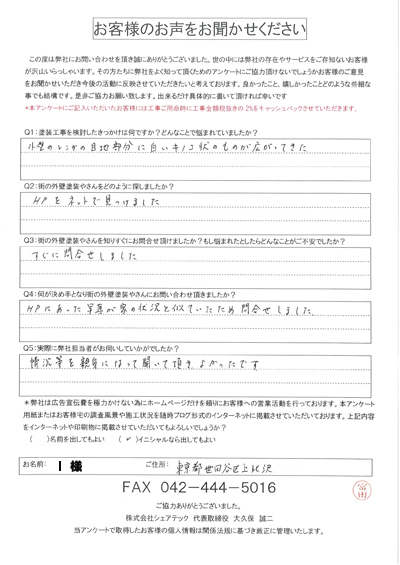 お客様のお声をお聞かせください
この度は弊社にお問い合わせを頂き誠にありがとうございました。世の中には弊社の存在やサービスをご存知ないお客様
が沢山いらっしゃいます。その方たちに弊社をよく知って頂くためのアンケートにご協力頂けないでしょうかお客様のご意見
をお聞かせいただき今後の活動に反映させていただきたいと考えております。良かったこと、嬉しかったことどのような些細な
事でも結構です。是非ご協力お願い致します。出来るだけ具体的に書いて頂ければ幸いです
*本アンケートにご記入いただいたお客様には工事ご用命時に工事金額税抜きの 2%をキャッシュバックさせていただきます。
Q1:塗装工事を検討したきっかけは何ですか?どんなことで悩まれていましたか?
外壁のレンガの目地部分に白いキノコ状のものが広がってきた
Q2:街の外壁塗装やさんをどのように探しましたか?
HPをネットで見つけました
Q3:街の外壁塗装やさんを知りすぐにお問合せ頂けましたか?もし悩まれたとしたらどんなことがご不安でしたか?
すぐに問合せしました
Q4:何が決め手となり街の外壁塗装やさんにお問い合わせ頂きましたか?
HPにあった写真が家の状況と似ていたため問合せしました
Q5:実際に弊社担当者がお伺いしていかがでしたか?
情況等を親身になって聞いて頂きよかったです
*弊社は広告宣伝費を極力かけない為にホームページだけを頼りにお客様への営業活動を行っております。本アンケート
用紙またはお客様宅の調査風景や施工状況を随時ブログ形式のインターネットに掲載させていただいております。上記内容
をインターネットや印刷物に掲載させていただいてもよろしいでしょうか?
( )名前を出してもよい (✓)イニシャルなら出してもよい
お名前: I 様 ご住所: 東京都世田谷区上北沢
FAX 042-444-5016
ご協力ありがとうございました。
株式会社シェアテック 代表取締役 大久保 誠二
当アンケートで取得したお客様の個人情報は関係法規に基づき厳正に管理いたします。